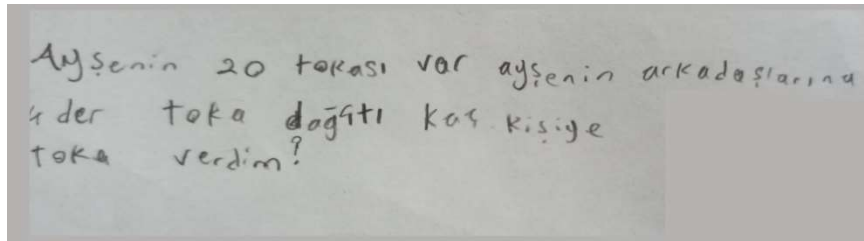 Ayşenin 20 tokası var ayşenin arkadaşlarına
4 der toka dağıtı kaç kişiye
toka verdim?